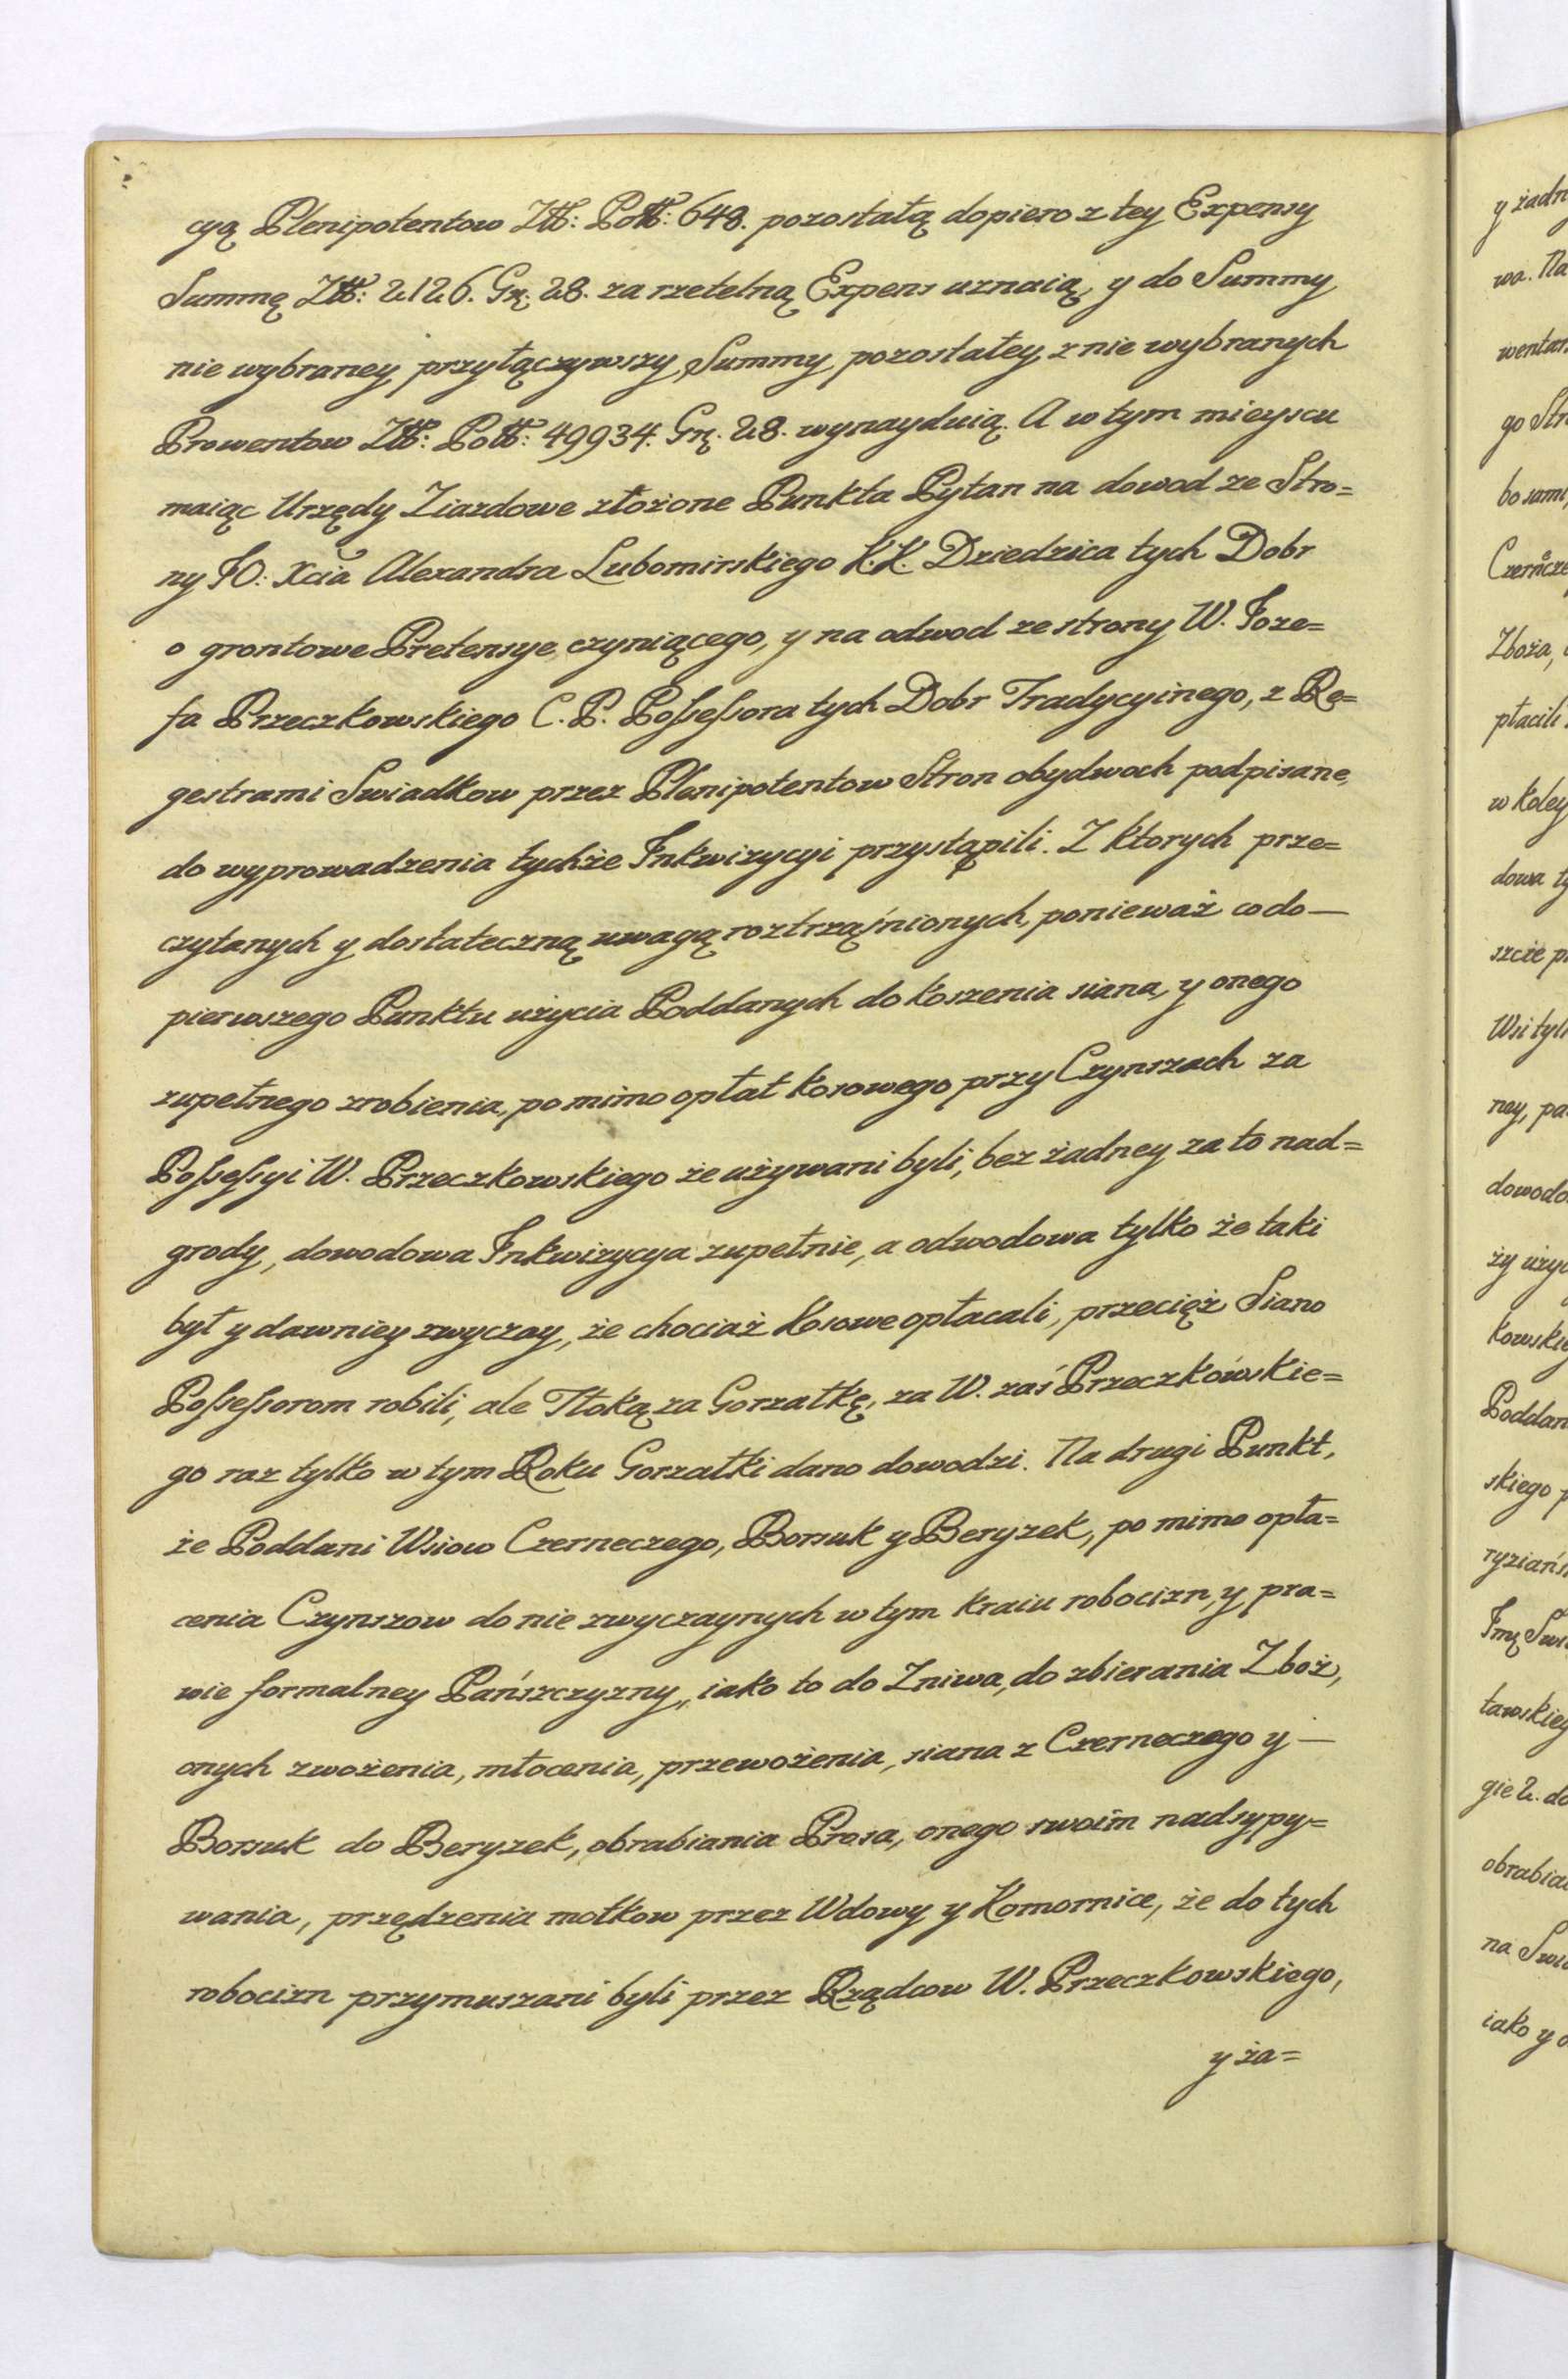 cyą Plenipotentow Złł: Połł: 648. pozostałą dopiero z tey Expensy
Summę Złł: 2126. Gr. 28. za rzetelną Expens uznaią, y do Summy
nie wybraney przyłączywszy, Summy pozostałey z nie wybranych
Prowentow Złł: Połł: 49934. Gr. 28. wynayduią. A w tym mieyscu
maiąc Urzędy Ziazdowe złożone Punkta Pytan na dowod ze Stro=
ny JO: Xcia Alexandra Lubomirskiego K.K. Dziedzica tych Dobr
o grontowe Pretensye czyniącego, y na odwod ze strony W. Joze=
fa Przeczkowskiego C.P. Possessora tych Dobr Tradycyinego, z Re=
gestrami Swiadkow przez Plenipotentow Stron obydwoch podpisane,
do wyprowadzenia tychże Inkwizycyi przystąpili. Z ktorych prze=
czytanych y dostateczną uwagą roztrząśnionych, ponieważ co do —
pierwszego Punktu użycia Poddanych do koszenia siana, y onego
zupełnego zrobienia, po mimo opłat kosowego przy Czynszach za
Possessyi W. Przeczkowskiego że używani byli, bez żadney za to nad=
grody, dowodowa Inkwizycya zupełnie, a odwodowa tylko że taki
był y dawniey zwyczay, że chociaż Kosowe opłacali, przecięż Siano
Possessorom robili, ale Tłoką za Gorzałkę, za W. zaś Przeczkówskie=
go raz tylko w tym Roku Gorzałki dano dowodzi. Na drugi Punkt,
że Poddani Wsiow Czerneczego, Borsuk y Beryzek, po mimo opła=
cenia Czynszow do nie zwyczaynych w tym kraiu robocizn, y pra=
wie formalney Pańszczyzny, iako to do Zniwa, do zbierania Zboż,
onych zwożenia, młocenia, przewożenia, siana z Czerneczego y —
Borsuk do Beryzek, obrabiania Prosa, onego swoim nadsypy=
wania, przędzenia motkow przez Wdowy y Komornice, że do tych
robocizn przymuszani byli przez Rządcow W. Przeczkowskiego,
y ża=
y żadn
wa. Na
go Str
bo sami,
Zboża,
płacili
w koley
dowa ty
szcze p
Wsi tyl
ney, pa
dowodo
ży użyc
kowskie
Poddan
skiego p
ryziańs
ławskieg
gie 2. do
obrabia
na Swi
iako y o